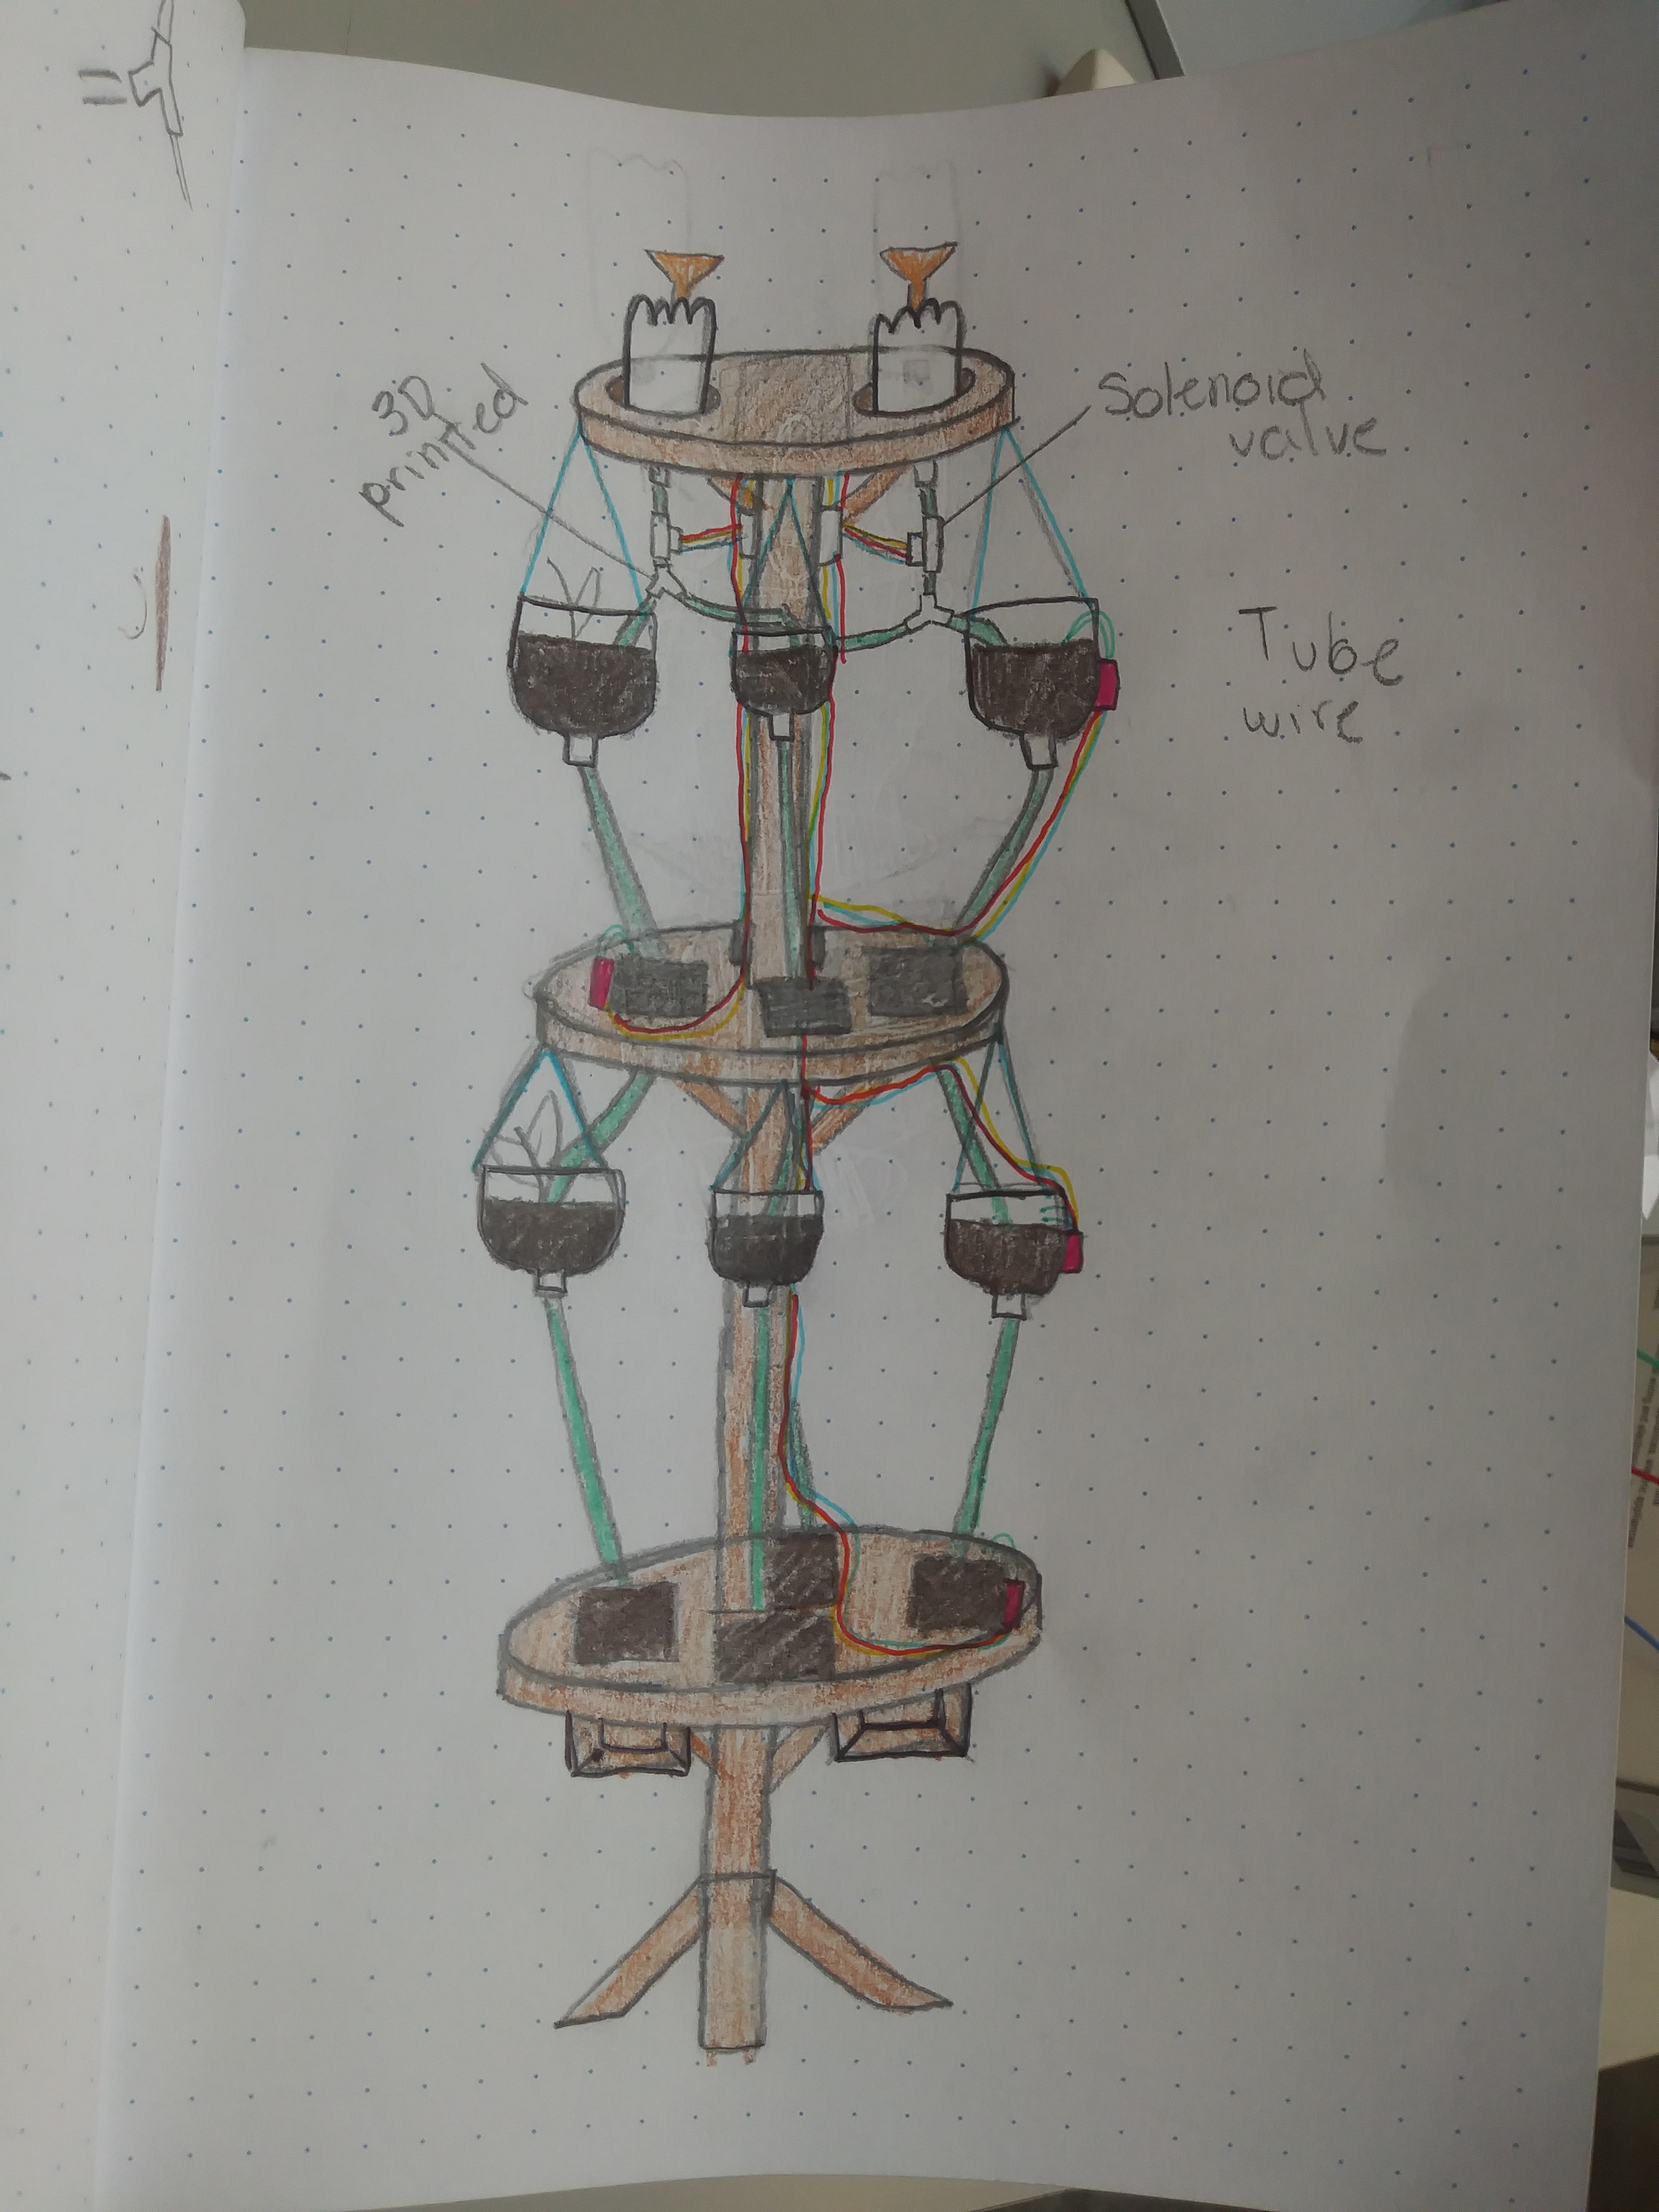 3D
printed
Solenoid
valve
Tube
wire